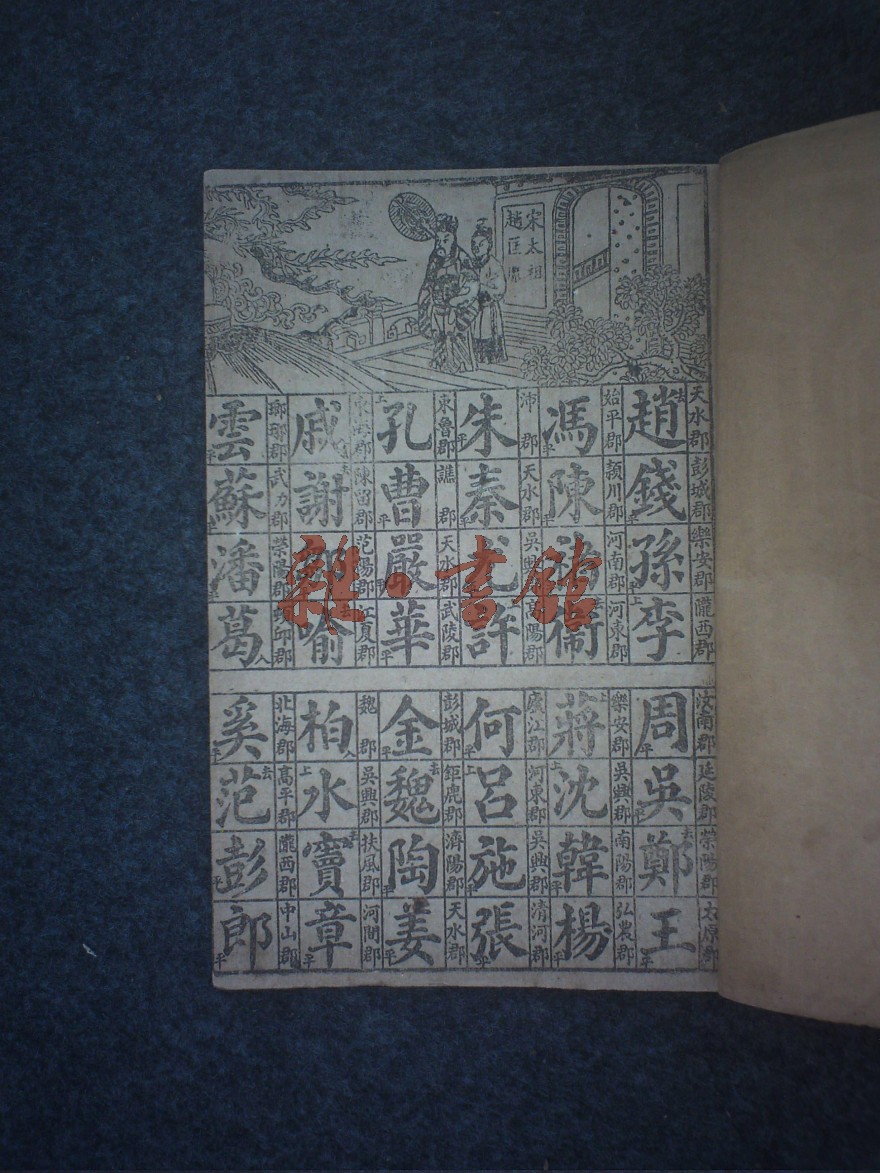 宋太祖
趙匡
天水郡 彭城郡 樂安郡 隴西郡
趙錢孫李
始平郡 潁川郡 河南郡 河東郡
馮陳褚衛
沛郡 天水郡 吳興郡 高陽郡
朱秦尤許
東魯郡 譙郡 天水郡 武陵郡
孔曹嚴華
東海郡 陳留郡 范陽郡 江夏郡
戚謝喻
瑯琊郡 武力郡 榮陽郡 邱郡
雲蘇潘葛
汝南郡 延陵郡 榮陽郡 太原郡
周吳鄭王
樂安郡 吳興郡 南陽郡 弘農郡
蔣沈韓楊
廬江郡 河東郡 吳興郡 清河郡
何呂施張
彭城郡 鉅鹿郡 濟陽郡 天水郡
金魏陶姜
魏郡 吳興郡 扶風郡 河間郡
柏水竇章
北海郡 高平郡 隴西郡 中山郡
奚范彭郎
雜·書館